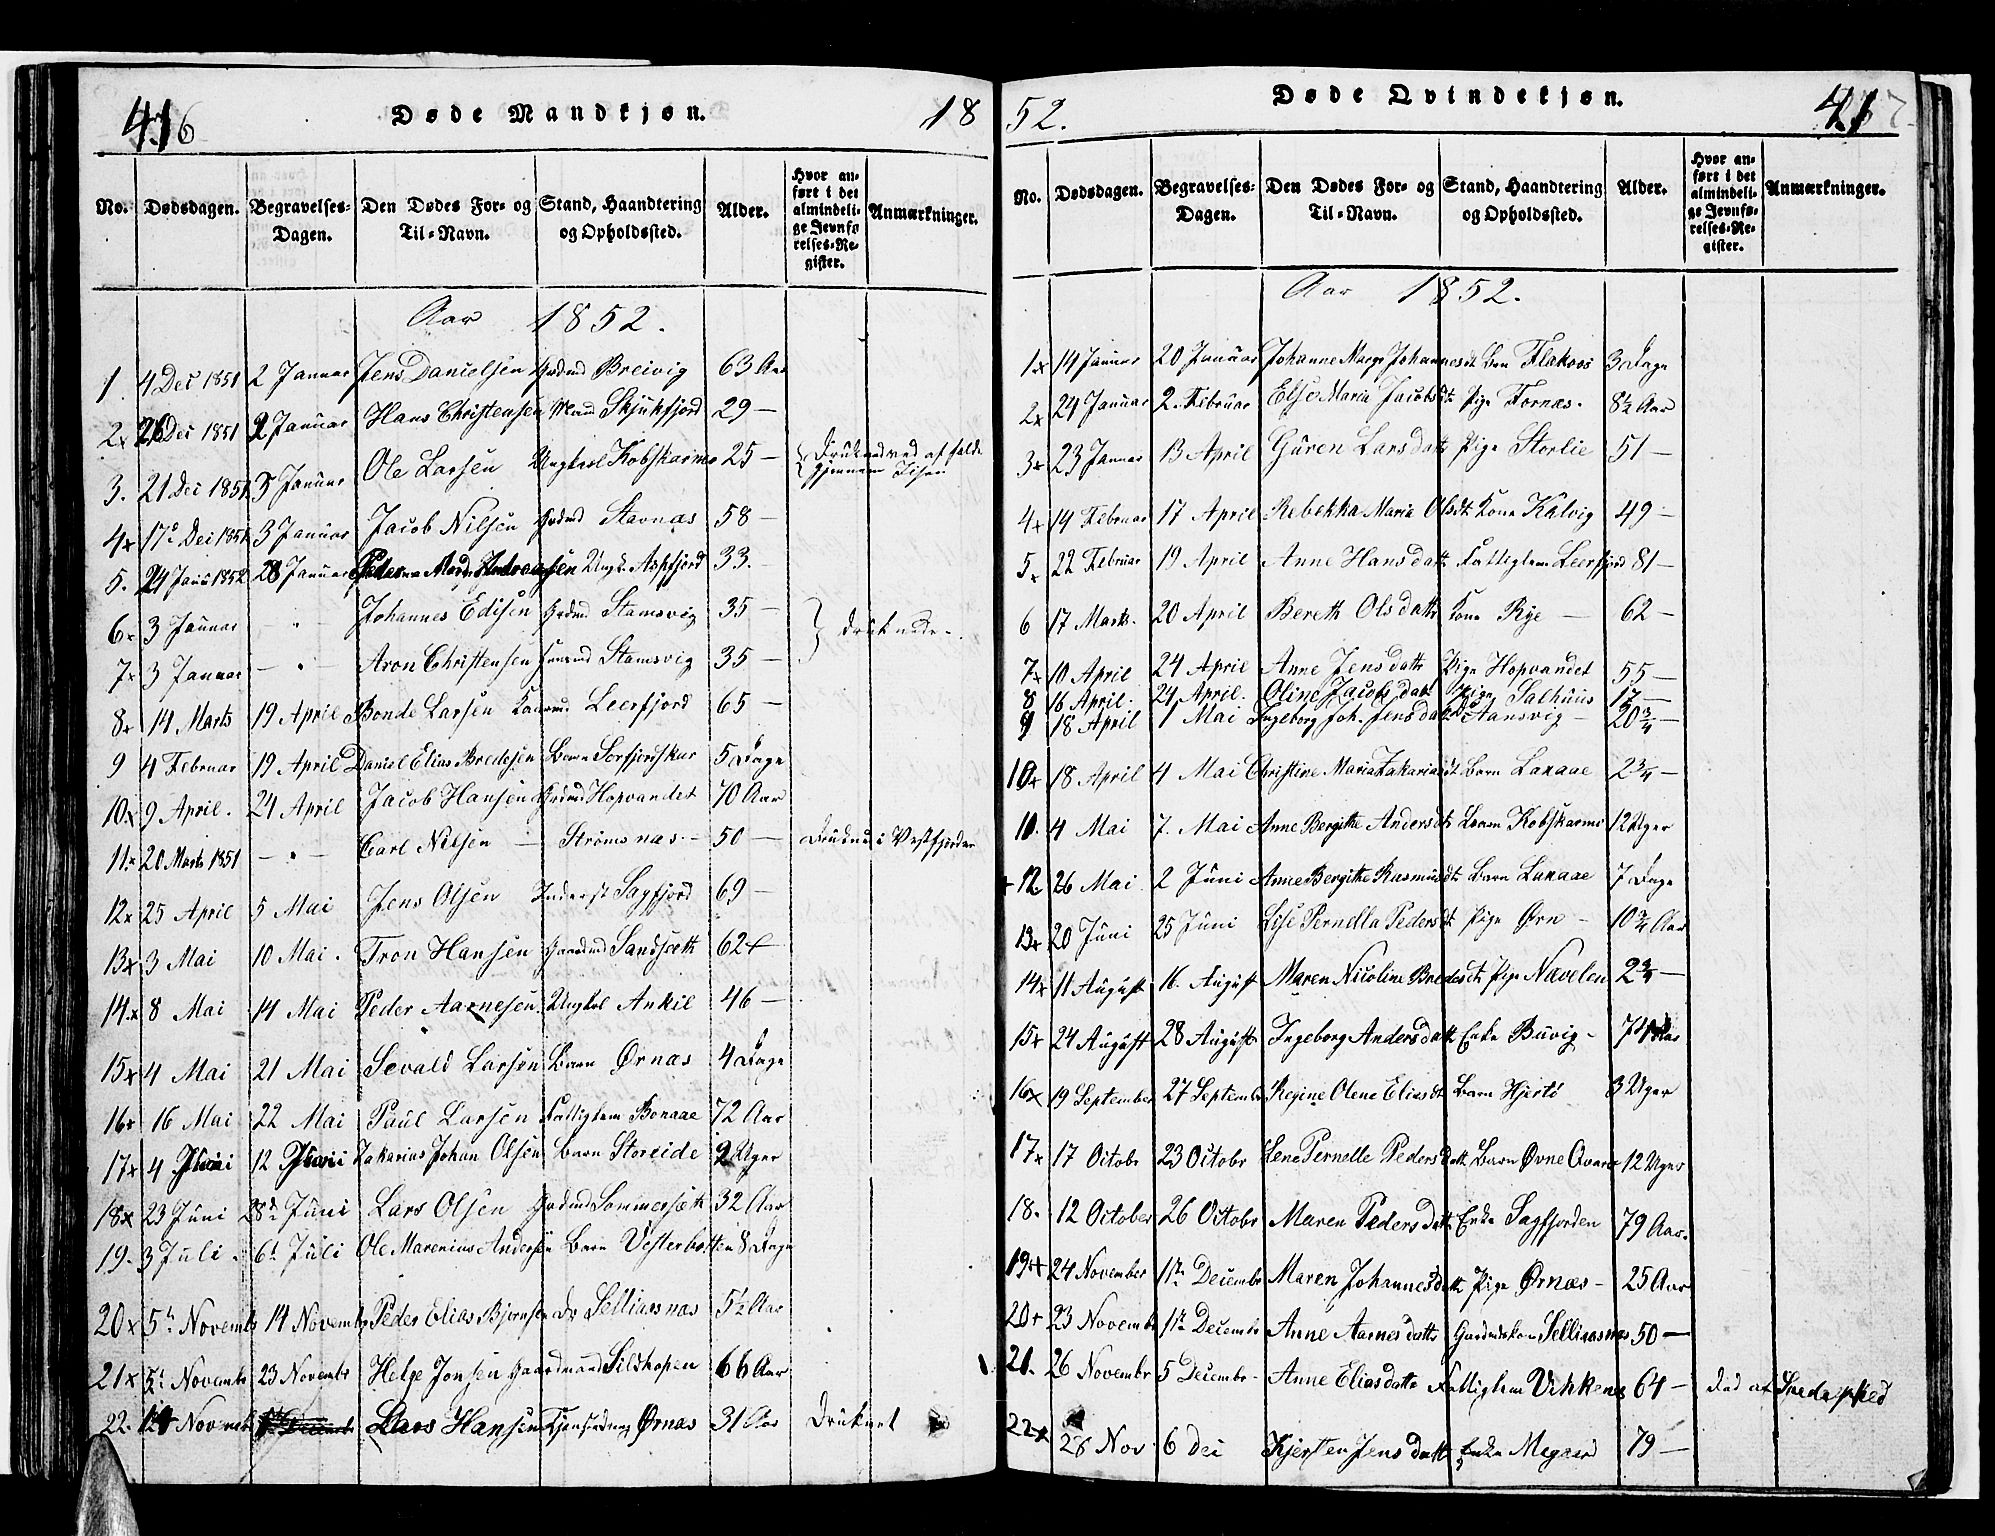 416 Døde Mandkjøn. 18
No. Dødsdagen. Begravelses-Dagen. Den Dødes For- og Til-Navn. Stand, Haandtering og Opholdssted. Alder. Hvor anført i det almindelige Jevnførelses-Register. Anmærkninger.
Aar 1852.
1 4 Dec 1851 2 Januar Jens Danielsen Grdmd Breivig 63 Aar
2x 26 Dec 1851 2 Januar Hans Christensen Skjukfjord 29 —
3. 21 Dec 1851 3 Januar Ole Larsen Ungkarl Kobskarnes 25 — Druknede ved at falde gjennem Iisen
4x 17de Dec 1851 3 Januar Jacob Nilsen Grdmd Stavnæs 58 —
5. 24 Janu 1852 28 Januar Peder Andreassen Ungk. Aspfjord 33.
6x 3 Januar — " — Johannes Edisen Grdmd Stamsvig 35 — } druknede
7x 3 Januar — " — Aron Christensen Stamsvig 35 —
8x 14 Marts 19 April Bonde Larsen Leerfjord 65 —
9 4 Februar 19 April Daniel Elias Bredesen Barn Sørfjordskar 5 Dage
10x 9 April. 24 April Jacob Hansen Grdmd Hopvandet 70 Aar
11x 20 Marts 1851 — " — Carl Nilsen — Strømsnæs — 50 — Druknet i Vestfjorden
12x 25 April 5 Mai Jens Olsen Inderst Sagfjord 69 —
13x 3 Mai 10 Mai. Tron Hansen Gaardmd Sandsæth 62
14x 8 Mai 14 Mai Peder Aarnesen Ungkl Ankil 46 —
15x 4 Mai 21 Mai Sevald Larsen Barn Ørnæs 4 Dage
16x 16 Mai 22 Mai Paul Larsen Fattiglem Bonaae 72 Aar
17x 4 Juni 12 Juni Zakarias Johan Olsen Barn Storeide 2 Uger
18x 23 Juni 28de Juni Lars Olsen Grdmd Sommersæth 32 Aar
19. 3 Juli 6te Juli Ole Marenius Andersen Barn Vesterbotten 8 Dage
20x 5te Novembr 14 Novembr Peder Elias Bjørnsen do Selliasnæs 5½ Aar
21x 5te Novembr 23 Novembr Helge Jonsen Gaardmand Sildhopen 66 Aar
22. 14 Novembr Lars Hansen Tjenestedreng Ørnæs 31 Aar Druknet
52. Døde Qvindekjøn. 417
No. Dødsdagen. Begravelses-Dagen. Den Dødes For- og Til-Navn. Stand, Haandtering og Opholdssted. Alder. Hvor anført i det almindelige Jevnførelses-Register. Anmærkninger.
Aar 1852.
1x 14 Januar 20 Januar Johanne Marge Johannesdt Barn Flekvos 3 Dage
2x 24 Januar 2. Februar Else Maria Jacobsdt Pige Fornæs. 8½ Aar
3x 23 Januar 13 April Guren Larsdatt Pige Storlie 51 —
4x 14 Februar 17 April Rebekka Maria Olsdt Kone Kalvig 49 —
5x 22 Februar 19 April Anne Hansdatt Fattiglem Leerfjord 81 —
6 17 Marts. 20 April Bereth Olsdatt Kone Rye — 62 —
7x 10 April 24 April Anne Jensdatt Pige Hopvandet 55 —
8 16 April. 24 April. Oline Jacobsdatt Pige Salhuus 17 —
9 18 April 1 Mai Ingeborg Joh. Jensdatt do Aansvig — 20¾ —
10x 18 April 4 Mai Christine Maria Zakariasdt Barn Lanaae 2¾ —
11. 4 Mai 7. Mai Anne Bergithe Andersdt Barn Kobskarnes 12 Uger
+12 26 Mai 2 Juni Anne Bergithe Rasmusdt Barn Lanaae 7 Dage
13x 20 Juni 25 Juni Lise Pernella Pedersdt Pige Ørn — 10¾ Aar
14x 11 August 16. August Maren Nicoline Bredesdt Pige Nævelen 2¾ —
15x 24 August 28 August Ingeborg Andersdatt Enke Buvig — 74 Aar
16x 19 September 27 Septembr Regine Olene Eliasdt Barn Hjertø 3 Uger
17x 17 Octobr 23 Octobr Lene Pernelle Pedersdatt Barn Øvne Qvar 12 Uger
18. 12 October 26 Octobr Maren Pedersdatt Enke Sagfjorden 79 Aar.
19x 24 November 11te Decembr Maren Johannesdatt Pige Ørnæs — 25 Aar
20+ 23 Novembr 11te Decembr Anne Aarnesdatt Gardmdskone Selliasnæs 50 —
21. 26 Novembr 5 Decembr. Anne Eliasdatt Fattiglem Vikkenes 64 — død af Spedalsked
22x 28 Nov 6 Dec Kjersten Jensdatt Enke Megaard 79 —